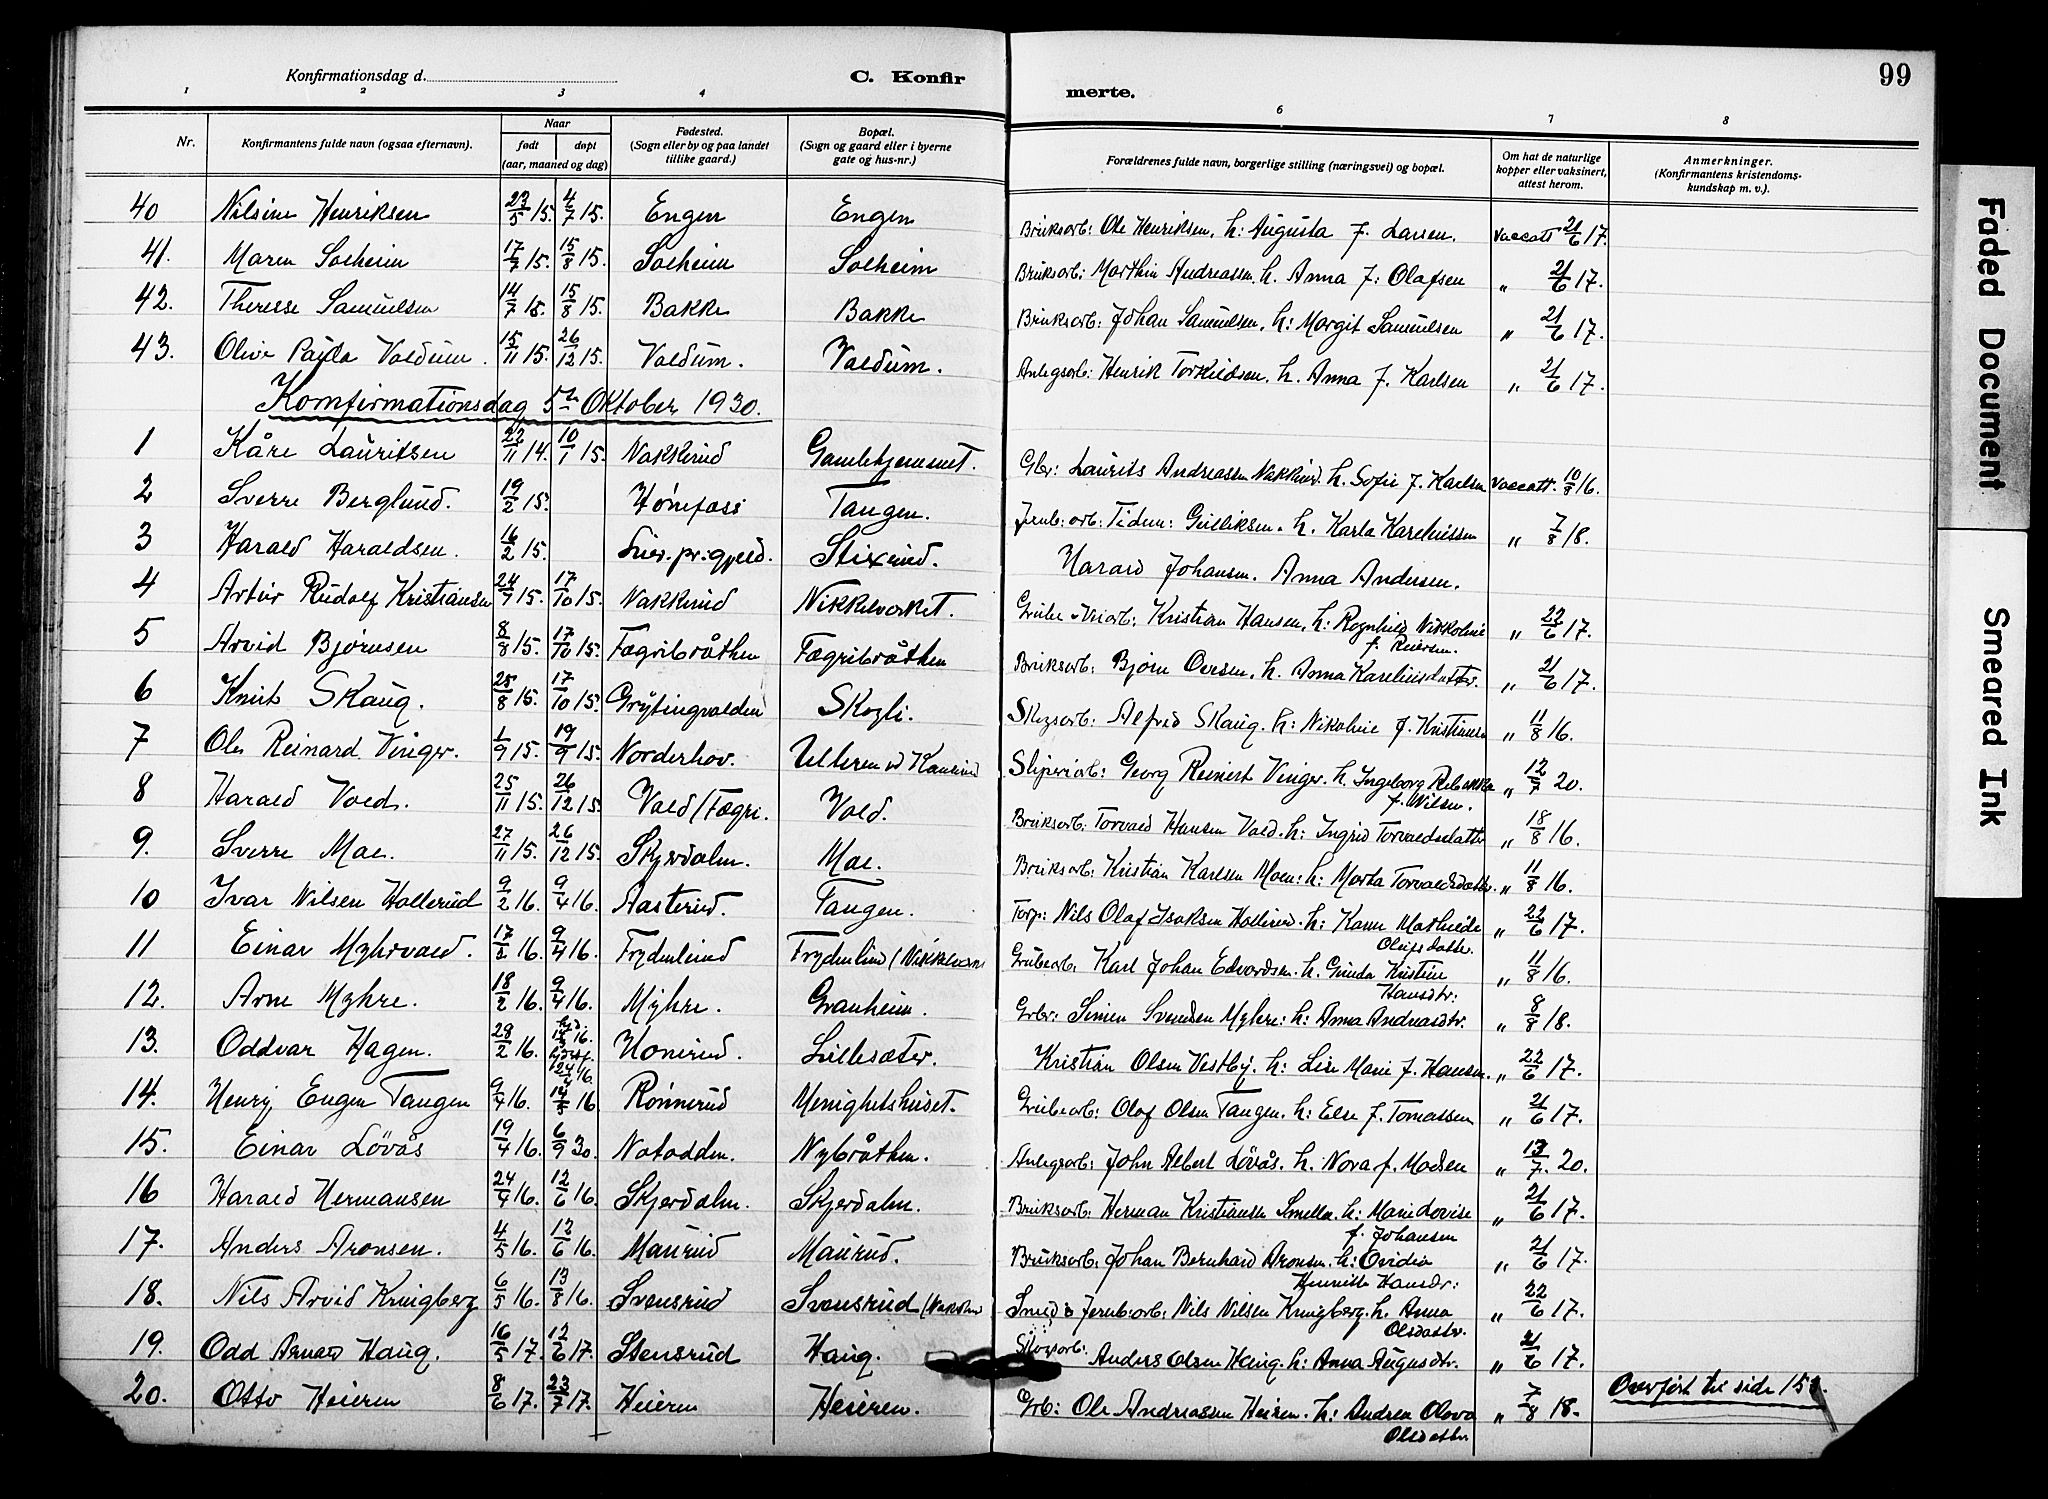 99
Konfirmationsdag d.
C. Konfirmerte.
1 2 3 4 5 6 7 8
Nr. Konfirmantens fulde navn (ogsaa efternavn). Naar født døpt (aar, maaned og dag) Fødested. (Sogn eller by og paa landet tillike gaard.) Bopæl. (Sogn og gaard eller i byerne gate og hus-nr.) Forældrenes fulde navn, borgerlige stilling (næringsvei) og bopæl. Om hat de naturlige kopper eller vaksinert, attest herom. Anmerkninger. (Konfirmantens kristendomskundskap m. v.).
40 Nilsine Henriksen 23/5 15. 4/7 15. Engen Engen Bruksarb: Ole Henriksen. h: Augusta f. Larsen. Vaccatt 21/6 17.
41. Maren Solheim 17/7 15. 15/8 15. Solheim Solheim Bruksarb: Marthin Andreassen. h. Anna f: Olafsen " 21/6 17.
42. Therese Samuelsen 14/7 15. 15/8 15. Bakke Bakke Bruksarb: Johan Samuelsen. h: Margit Samuelsen " 21/6 17.
43. Olive Paula Valdum. 15/11 15. 26/12 15. Valdum. Valdum. Anlegsarb: Henrik Torkildsen. h. Anna f. Karlsen " 21/6 17.
Konfirmationsdag 5te Oktober 1930.
1 Kåre Lauritsen 22/11 14. 10/1 15. Nakkerud Gamlehjemmet. Gbr: Laurits Andreassen Nakkerud. h. Sofie f. Karlsen Vaccatt. 10/8 16.
2 Sverre Berglund. 19/2 15. Hønefoss Tangen. Jernb: arb: Tidem: Gulliksen. h. Karla Kareliussen " 7/8 18.
3 Harald Haraldsen. 16/2 15. Lier. pr: gjeld. Stixrud. Harald Johansen. Anna Andersen.
4 Artur Rudolf Kristiansen 24/7 15. 17/10 15. Nakkerud Nikkelverket. Kristian Hansen. h: Ragnhild Nikkoline f. Reiersen. " 22/6 17.
5 Arvid Bjørnsen 8/8 15. 17/10 15. Fægribråthen Fægribråthen Bruksarb: Bjørn Oversen. h. Anna Kareliusdatter. " 21/6 17.
6 Knut Skaug. 25/8 15. 17/10 15. Grytingvolden Skogli. Skogsarb: Alfred Skaug. h: Nikoline f. Kristiansen " 11/8 16.
7 Ole Reinard Vinger. 1/9 15. 19/9 15. Norderhov. Ulleren Sliperiarb: Georg Reinert Vinger. h Ingeborg Rebekka f. Nilsen. " 12/7 20.
8 Harald Vold. 25/11 15. 26/12 15. Vold / Fægri. Vold. Bruksarb: Torvald Hansen Vold. h: Ingrid Torvaldsdatter " 18/8 16.
9. Sverre Moe. 27/11 15. 26/12 15. Skjerdalen. Moe. Bruksarb: Kristian Karlsen Moen: h: Marta Torvaldsdatter. " 11/8 16.
10 Ivar Nilsen Hollerud 9/2 16. 9/4 16. Aasterud. Tangen. Torp: Nils Olaf Isaksen Hollerud. h: Karen Mathilde Olufsdatter. " 22/6 17.
11 Einar Myhrvold. 17/2 16. 9/4 16. Frydenlund Frydenlund Grubearb. Karl Johan Edvardsen. h. Gunda Kristine Hansdtr: " 11/8 16.
12. Arne Myhre. 18/2 16. 9/4 16. Myhre. Granheim. Gbr: Simen Svendsen Myhre: h: Anna Andreasdtr. " 8/8 18.
13. Oddvar Hagen. 29/2 16. Honerud. Lillesæter. Kristian Olsen Vestby. h: Lise Marie f. Hansen. " 22/6 17.
14. Henry Eugen Tangen 9/4 16. 16 Rønnerud Menighetshuset. Grubearb: Olaf Olsen Tangen. h: Else f. Tomassen " 21/6 17.
15. Einar Lövås 19/4 16. 6/9 30. Notodden. Nybråthen. Anlegsarb: John Albert Lövås. h. Nora f. Madsen " 13/7. 20.
16 Harald Hermansen 24/4 16. 12/6 16. Skjerdalen. Skjerdalen. Bruksarb: Herman Kristiansen h: Marie Lovise f. Johansen " 21/6 17.
17. Anders Aronsen. 4/5 16. 12/6 16. Maurud Maurud. Bruksarb: Johan Bernhard Aronsen. h: Ovidia Henriette Hansdr: " 21/6 17.
18. Nils Arvid Kringberg 6/5 16. 13/8 16. Svensrud Svensrud Jernb: arb: Nils Nilsen Kringberg. h. Anna Olsdatter. " 22/6 17.
19. Odd Arnard Haug. 16/5 17. 12/6 17. Stensrud Haug. Skogsarb: Anders Olsen Haug. h: Anna Augusdtr. " 21/6 17.
20. Otto Heieren 8/6 17. 23/7 17. Heieren Heieren. Grb: Ole Andreassen Heieren. h: Andrea Olava Olsdatter " 7/8 18. Overført til side
Faded Document
Smeared Ink